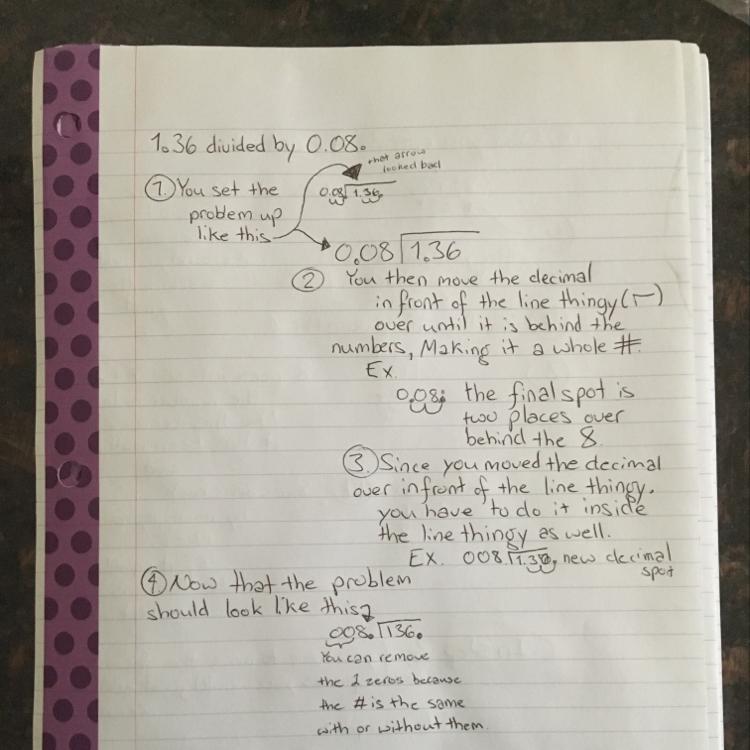 1.36 divided by 0.08.
that arrow
looked bad
① You set the
0.08 1.36
problem up
like this
0.08 1.36
② You then move the decimal
in front of the line thingy (┌─)
over until it is behind the
numbers, Making it a whole #.
Ex.
0.08. the final spot is
two places over
behind the 8.
③ Since you moved the decimal
over in front of the line thingy,
you have to do it inside
the line thingy as well.
Ex. 008. 1.36. new decimal
spot
④ Now that the problem
should look like this
008. 136.
You can remove
the 2 zeros because
the # is the same
with or without them.